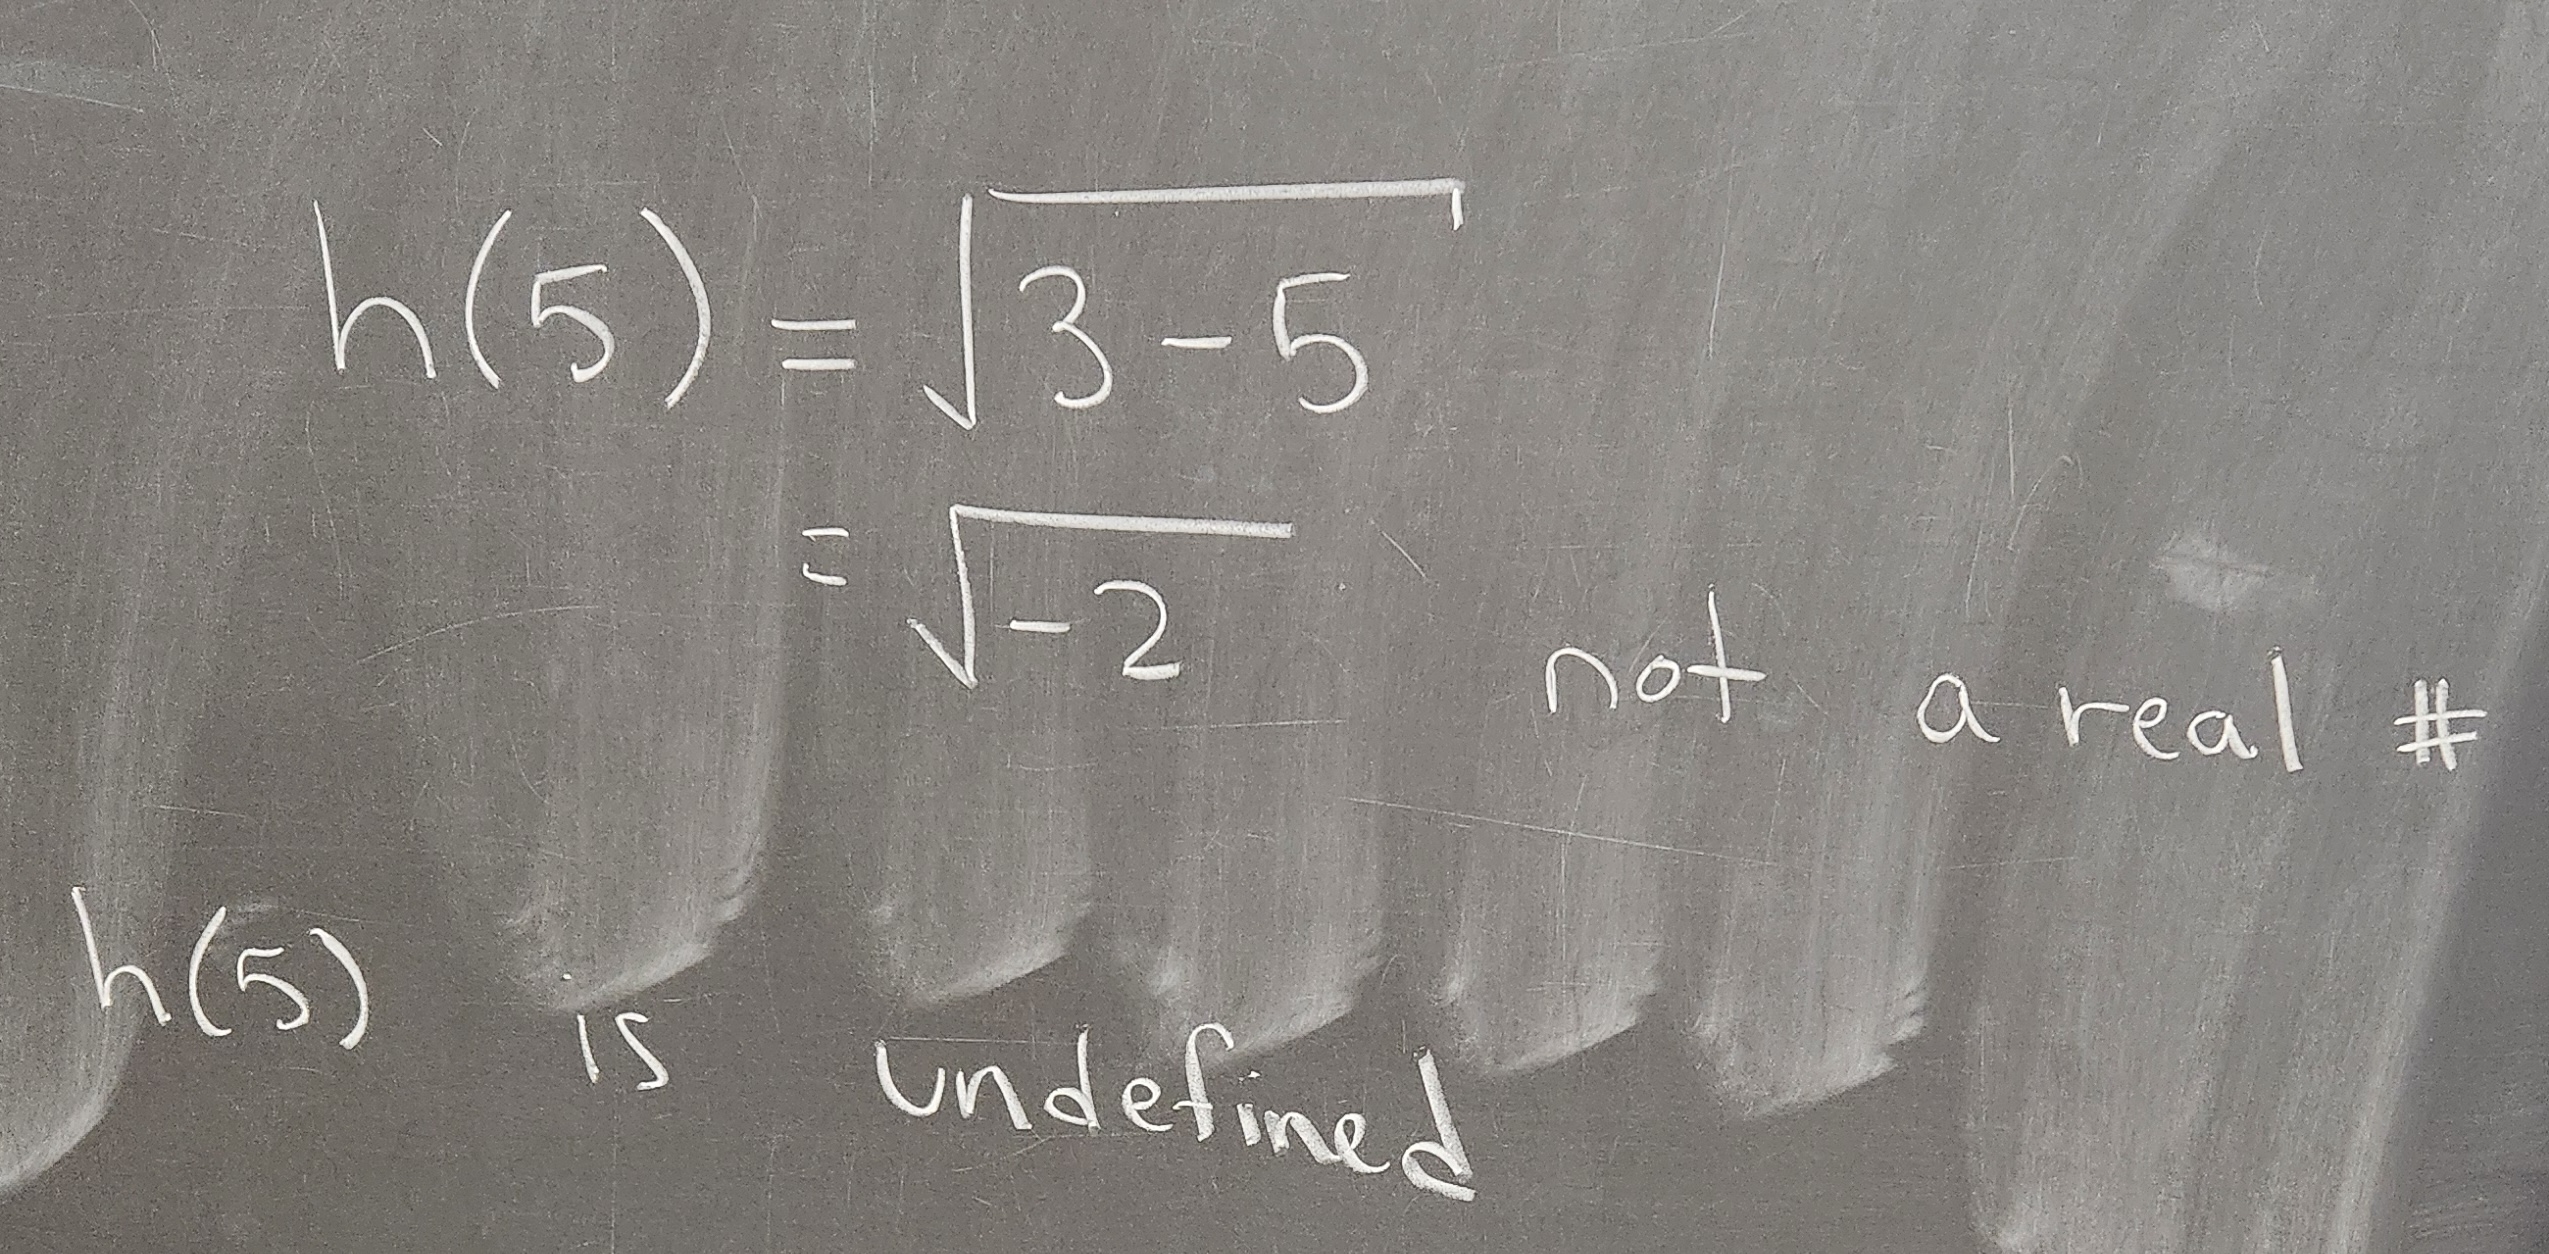 h(5) = √3-5
= √-2 not a real #
h(5) is undefined